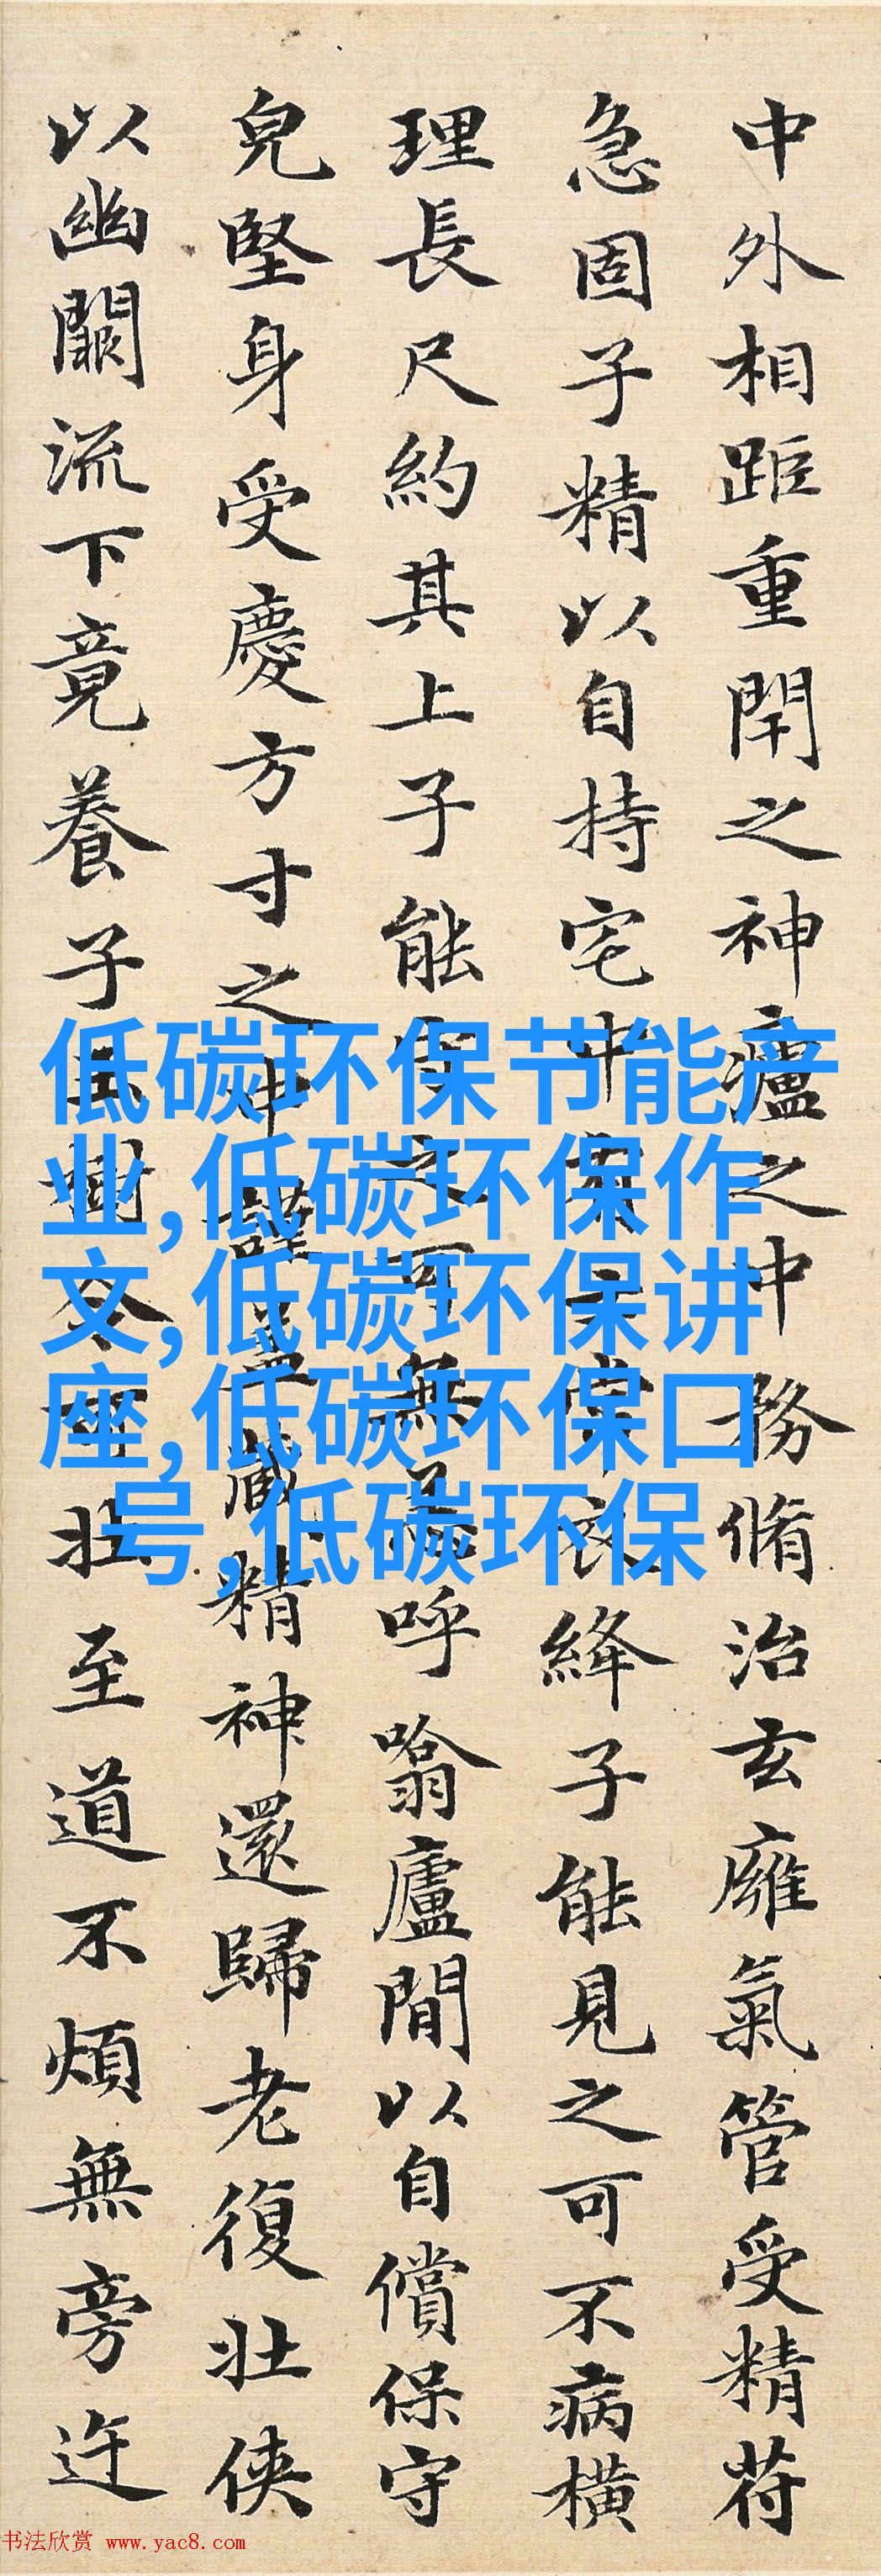 中外相距重閇之神廬之中務脩治玄廱氣管受精苻
急固子精以自持宅中有士常衣絳子能見之可不病橫
理長尺約其上子能守之可無恙呼噏廬間以自償保守
皃堅身受慶方寸之中謹蓋藏精神還歸老復壯俠
以幽闕流下竟養子玉樹令可壯至道不煩無旁迕
低碳环保节能产
业,低碳环保作
文,低碳环保讲
座,低碳环保口
号,低碳环保
书法欣赏 www.yac8.com